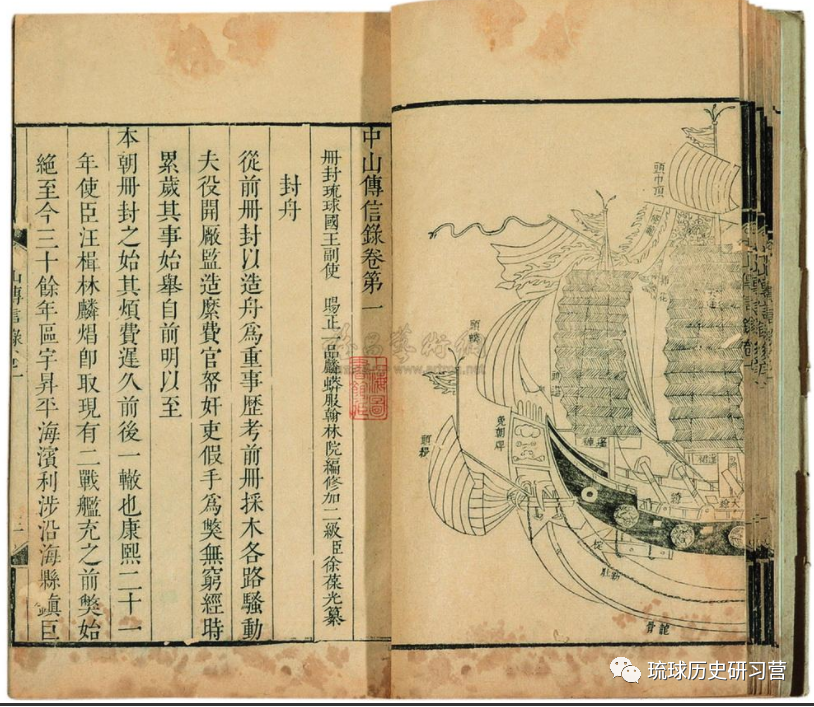 中山傳信錄卷第一
冊封琉球國王副使 賜正一品麟蟒服翰林院編修加二級臣徐葆光纂
封舟
從前冊封以造舟爲重事歷考前冊採木各路騷動
夫役開廠監造縻費官帑奸吏假手爲獘無窮經時
累歲其事始舉自前明以至
本朝冊封之始其煩費遲久前後一轍也康熙二十一
年使臣汪楫林麟焻卽取現有二戰艦充之前獘始
絕至今三十餘年區宇昇平海濱利涉沿海縣鎮巨
山傳信錄 卷一
頭巾頂
頭𢄼
免朝牌
頭緝
椗
龍骨
琉球历史研习营